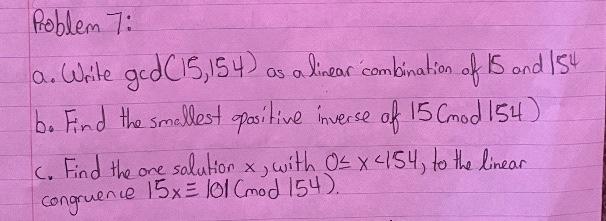 Problem 7:
a. Write gcd(15,154) as a linear combination of 15 and 154
b. Find the smallest positive inverse of 15 (mod 154)
c. Find the one solution x, with 0≤ x <154, to the linear
congruence 15x ≡ 101 (mod 154).